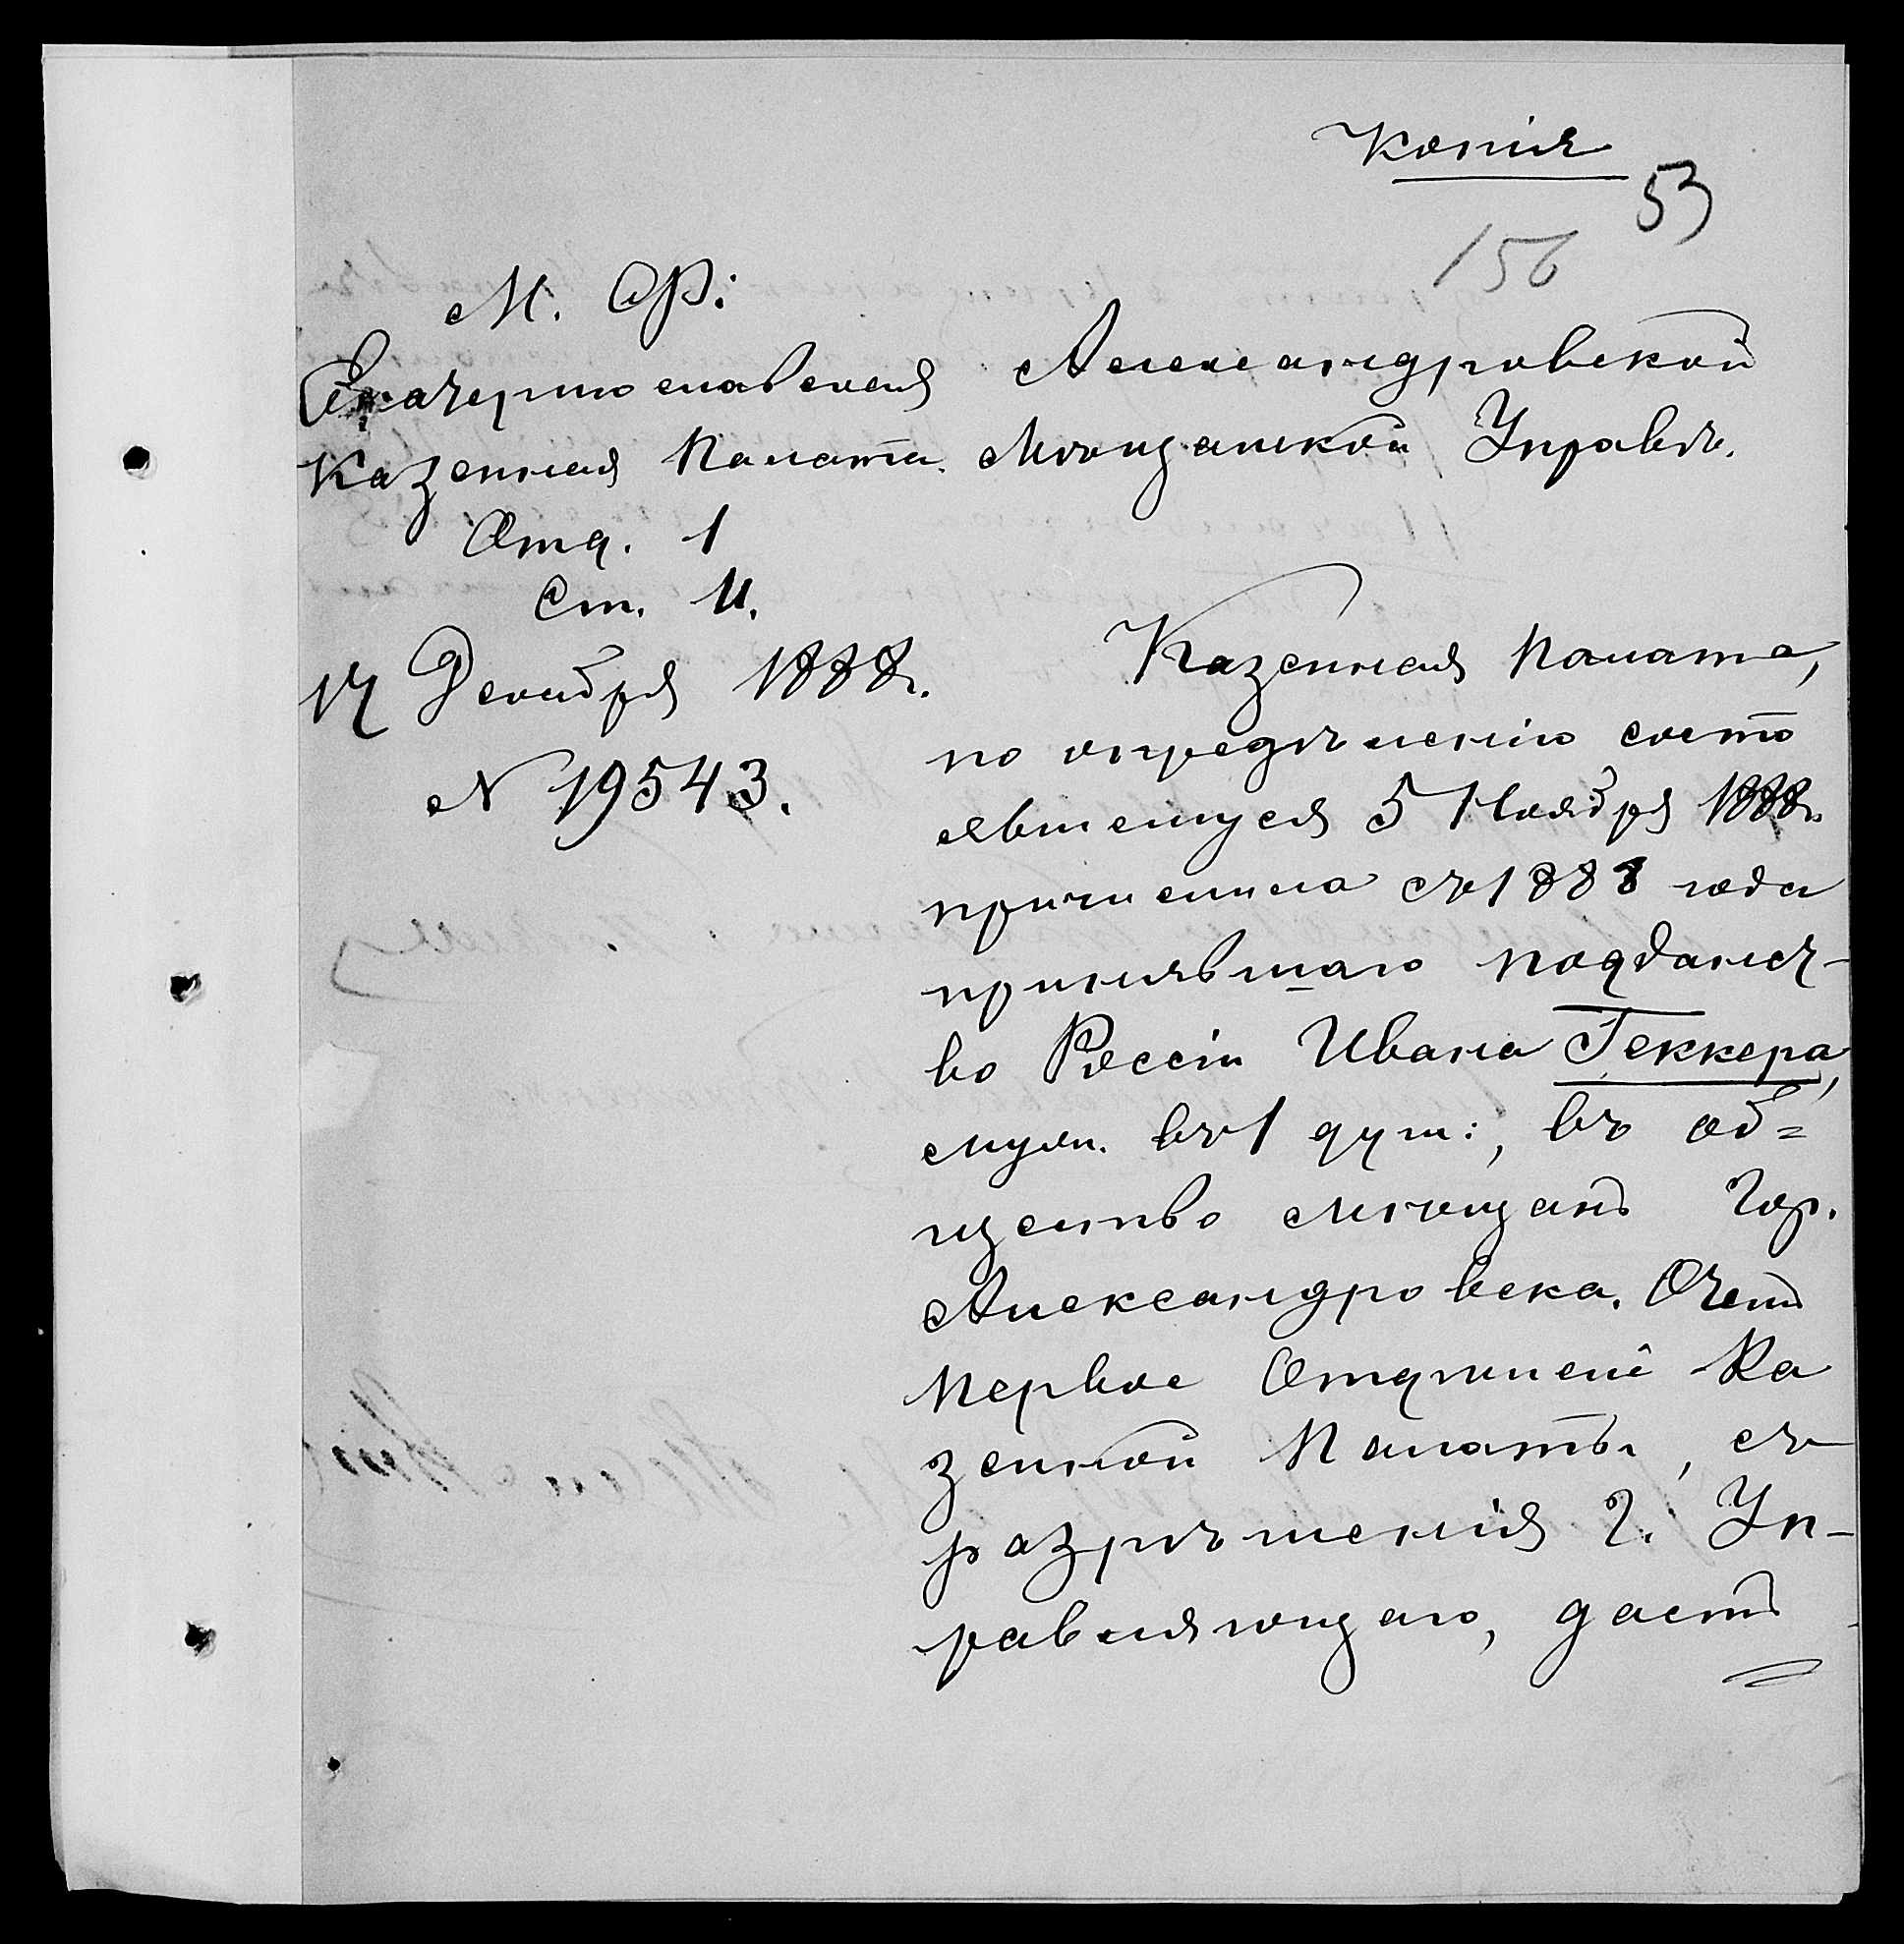 Копія
53
156
М. Ф.
Екатеринославская
Казенная Палата.
Отд. 1
Ст. 11.
17 Декабря 1888 г.
N 19543.
Александровской
Мѣщанской Управѣ.
Казенная Палата,
по опредѣленію состо
явшемуся 5 Ноября 1888 г.
причислила съ 1888 года
принявшаго подданст-
во Россіи Ивана Геккера,
муж. въ 1 душ:, въ об=
щество мѣщанъ Гор.
Александровска. О чемъ
Первое Отдѣленіе Ка
зенной Палаты, съ
разрѣшенія Г. Уп-
равляющаго, даетъ